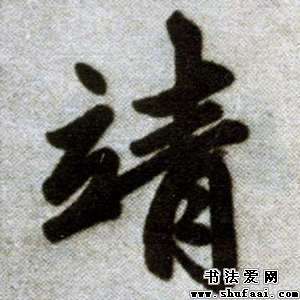 靖
书法爱网
www.shufaai.com